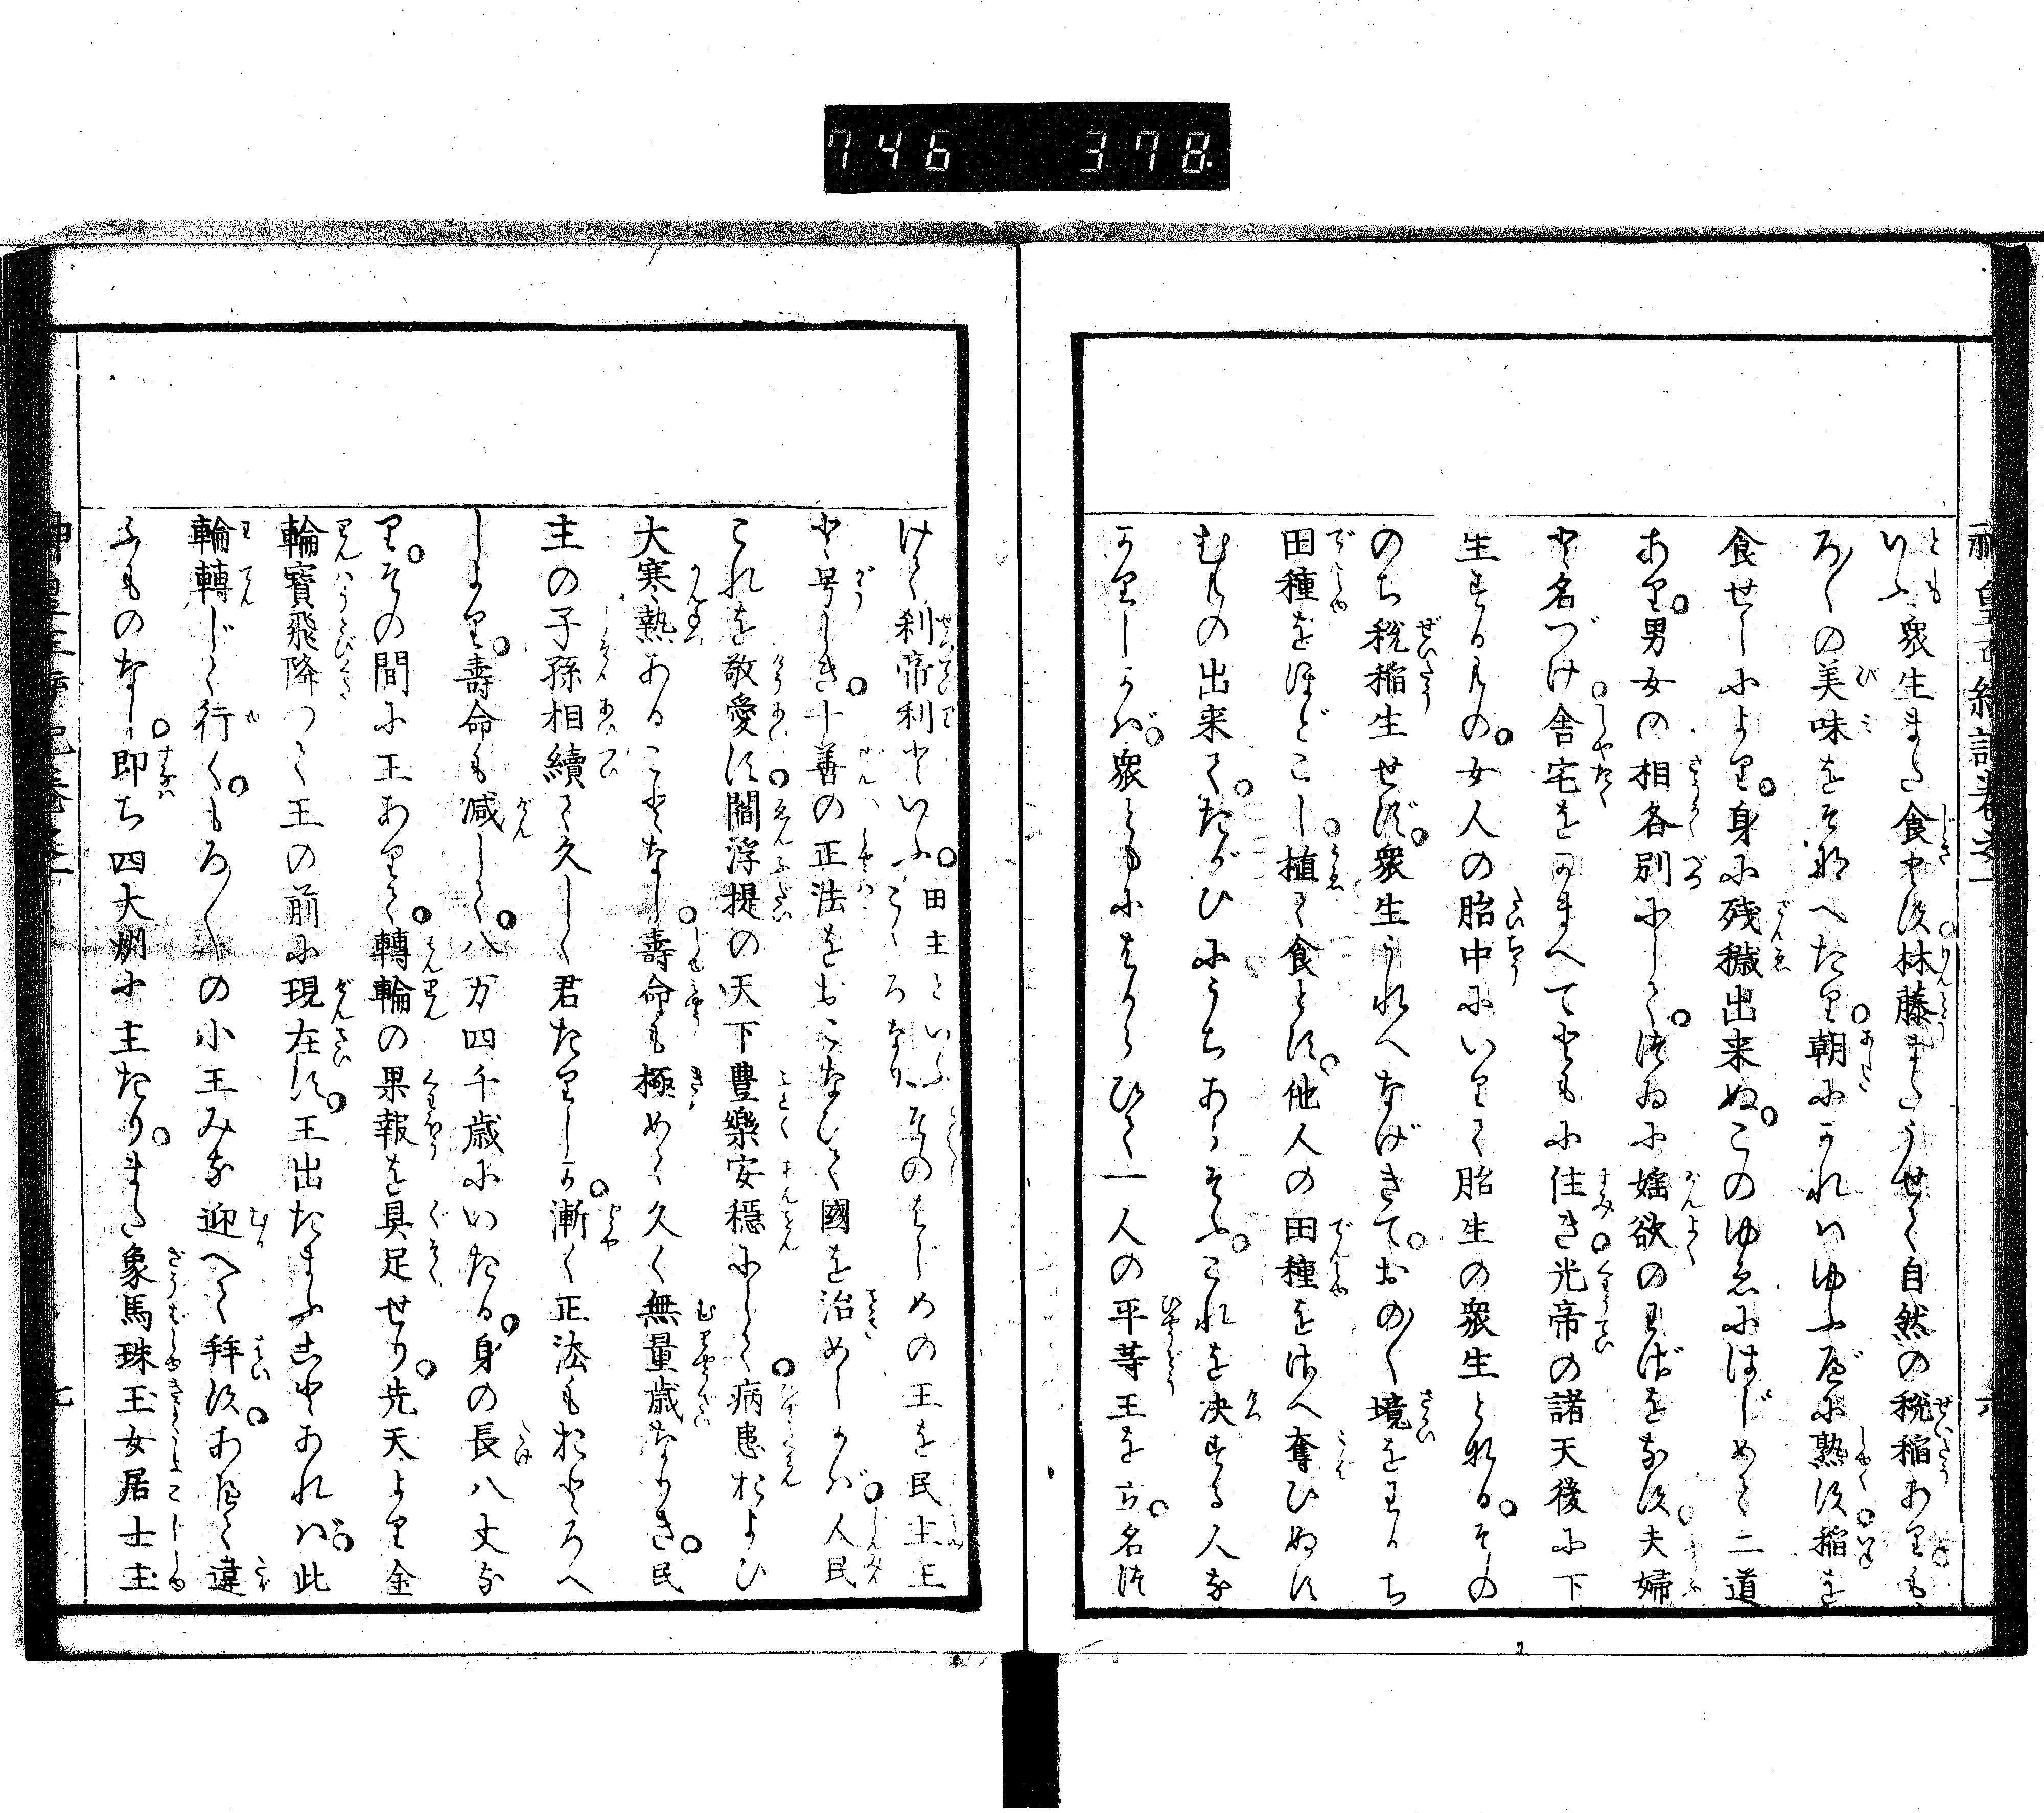 746 378
いふ衆生また食とす林藤またうせて自然の秔稲あり。も
ろ〱の美味をそなへたり。朝にかれはゆふべに熟す。稲を
食せしによりて。身に残穢出来ぬ。このゆゑにはじめて二道
あり。男女の相各別にして。つゐに婬欲のわざをなす。夫婦
と名づけ。舎宅をかまへてともに住き。光帝の諸天後に下
生する者の。女人の胎中にいりて胎生の衆生となる。その
のち秔稲生せず。衆生うれへなげきて。おの〱境をわかち
田種をほどこし。植て食とす。他人の田種をさへ奪ひぬす
むもの出来て。たがひにうちあらそふ。これを決する人な
かりしかば。衆ともにはからひて一人の平等王を立。名づ
けて刹帝利といふ。田主といふこゝろなりそのはじめの王を民主王
と号しき。十善の正法をおこなひて國を治めしかば。人民
これを敬愛す。閻浮提の天下豊樂安穏にして。病患および
大寒熱あることなし。壽命も極めて久く無量歳なりき。民
主の子孫相續て久しく君たりしが。漸く正法もおとろへ
しより。壽命も減じて。八万四千歳にいたる。身の長八丈な
り。その間に王ありて。轉輪の果報を具足せり。先天より金
輪寳飛降つて王の前に現在す。王出たまふことあれば。此
輪轉じて行く。もろ〱の小王みな迎へて拜す。あへて違
ふものなし。即ち四大洲に主たり。また象馬珠玉女居士主